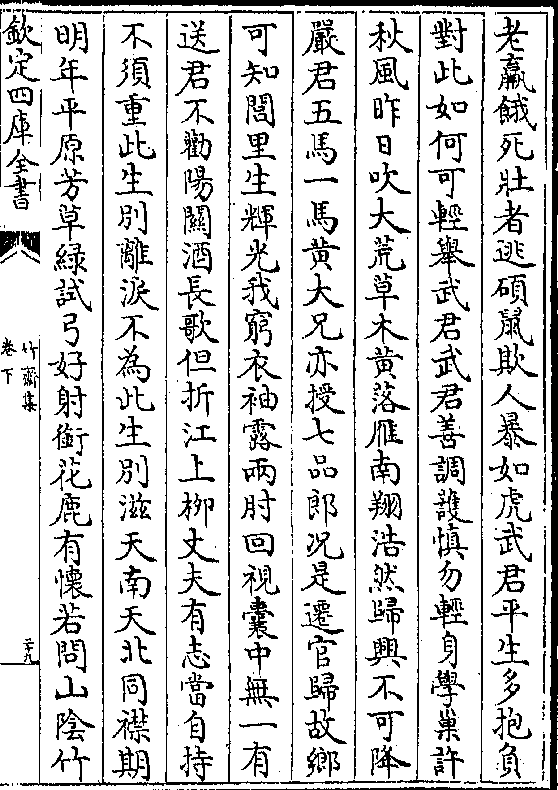 老羸餓死壯者逃碩鼠欺人暴如虎武君平生多抱負
對此如何可輕舉武君武君善調護慎勿輕身學巢許
秋風昨日吹大荒草木黄落雁南翔浩然歸興不可降
嚴君五馬一馬黄大兄亦授七品郎况是遷官歸故鄉
可知閭里生輝光我窮衣袖露兩肘回視囊中無一有
送君不勸陽關酒長歌但折江上栁丈夫有志當自持
不須重此生别離淚不為此生别滋天南天北同襟期
明年平原芳草綠試弓好射銜花鹿有懷若問山陰竹
欽定四庫全書
竹齋集
卷下
二十九